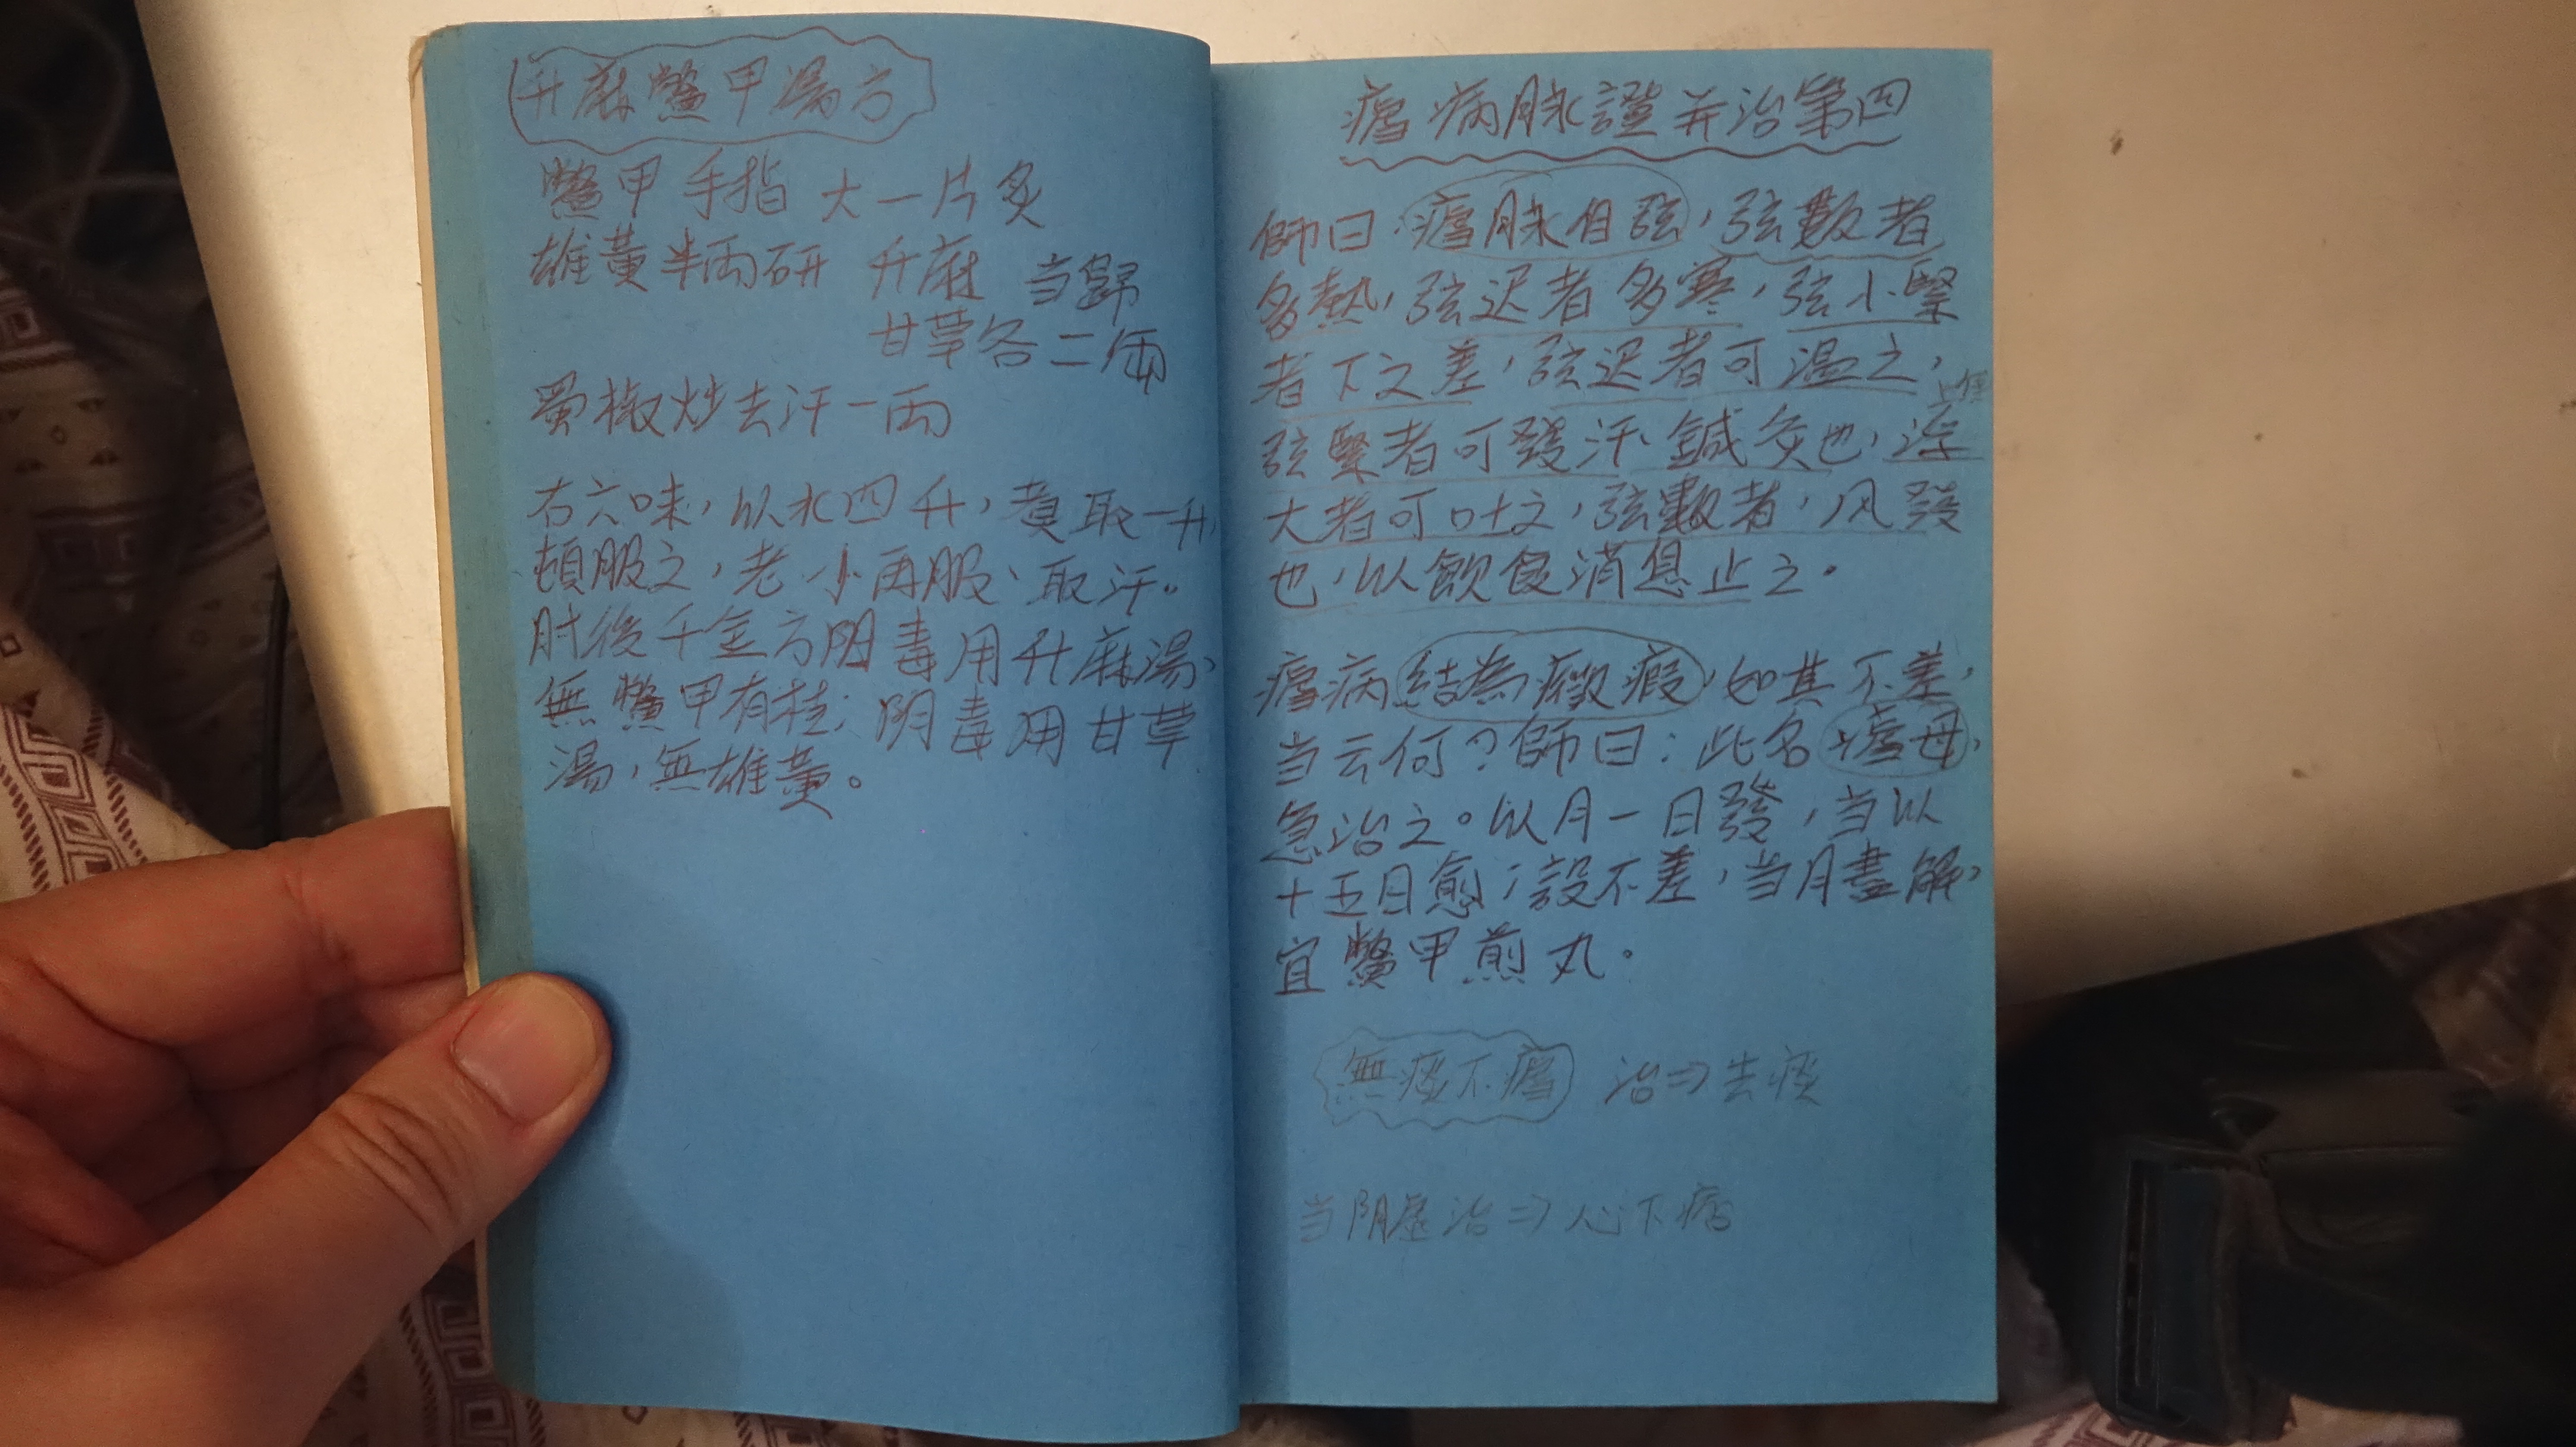 升麻鱉甲湯方
鱉甲手指大一片炙
雄黃半両研 升麻 当歸
甘草各二両
蜀椒炒去汗一両
右六味，以水四升，煮取一升，
頓服之，老小再服、取汗。
肘後千金方阴毒用升麻湯，
無鱉甲有桂；阴毒用甘草
湯，無雄黃。
瘧病脉證并治第四
師曰：瘧脉自弦，弦數者
多熱，弦迟者多寒，弦小緊
者下之差，弦迟者可溫之，
弦緊者可發汗、鍼灸也，浮
大者可吐之，弦數者，风發
也，以飲食消息止之。
瘧病結為癥瘕，如其不差，
当云何？師曰：此名瘧母，
急治之。以月一日發，当以
十五日愈；設不差，当月盡解，
宜鱉甲煎丸。
無痰不瘧 治⇒去痰
当阴虛治⇒心下痞